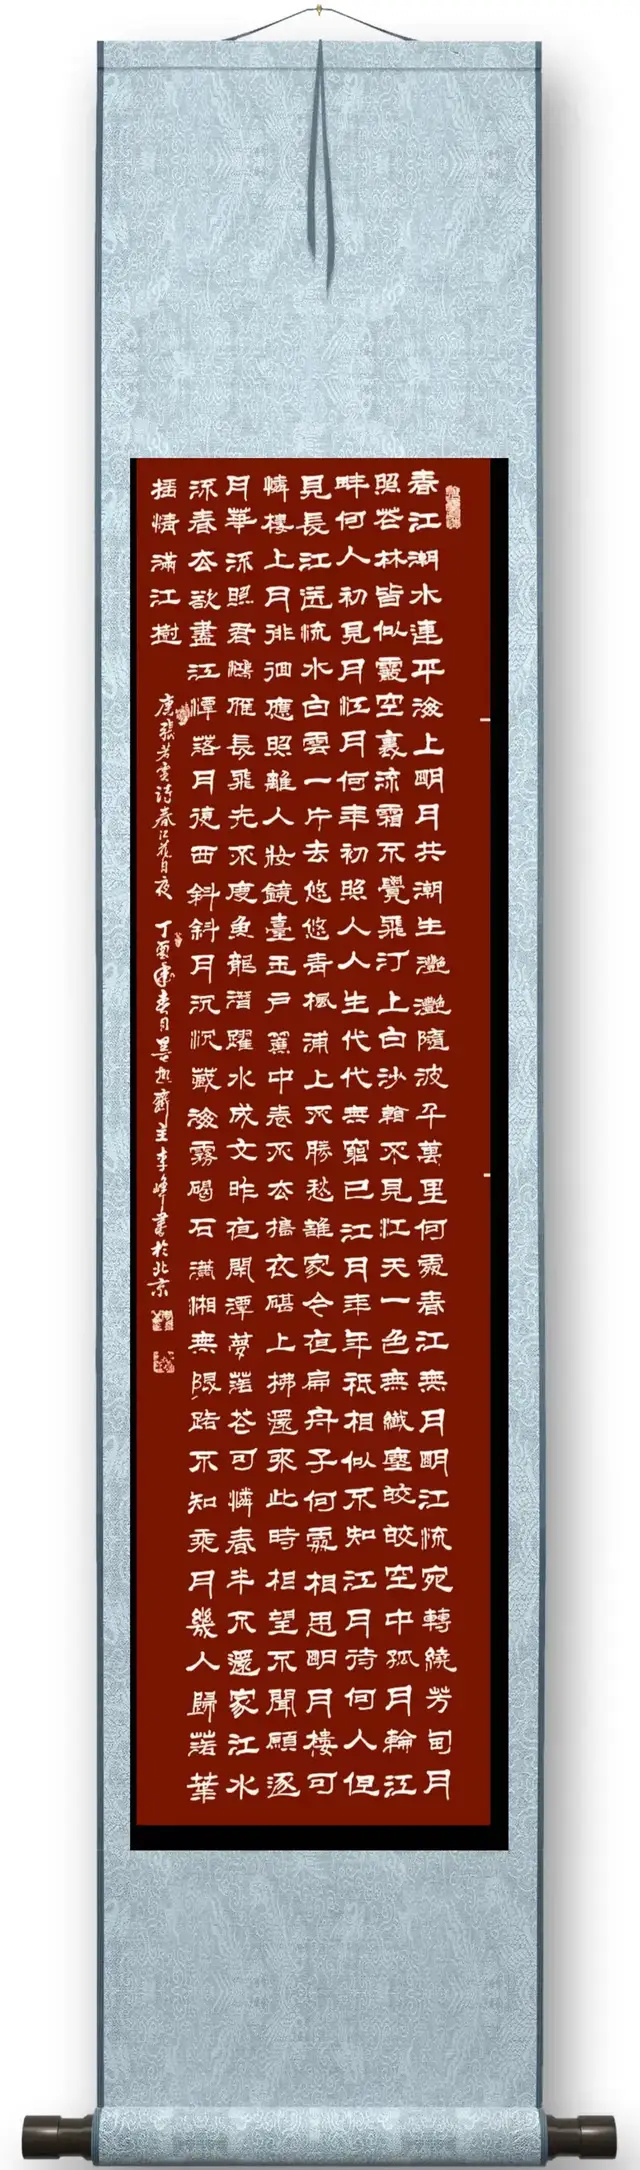 春江潮水連平海上明月共潮生灩灩隨波千萬里何處春江無月明江流宛轉繞芳甸月
照花林皆似霰空裏流霜不覺飛汀上白沙看不見江天一色無纖塵皎皎空中孤月輪江
畔何人初見月江月何年初照人人生代代無窮已江月年年祇相似不知江月待何人但
見長江送流水白雲一片去悠悠青楓浦上不勝愁誰家今夜扁舟子何處相思明月樓可
憐樓上月徘徊應照離人妝鏡臺玉戶簾中卷不去搗衣砧上拂還來此時相望不聞願逐
月華流照君鴻雁長飛光不度魚龍潛躍水成文昨夜閒潭夢落花可憐春半不還家江水
流春去欲盡江潭落月復西斜斜月沉沉藏海霧碣石瀟湘無限路不知乘月幾人歸落華
搖情滿江樹
唐張若虛詩春江花月夜 丁酉歲春月墨趣齋主李峰書於北京